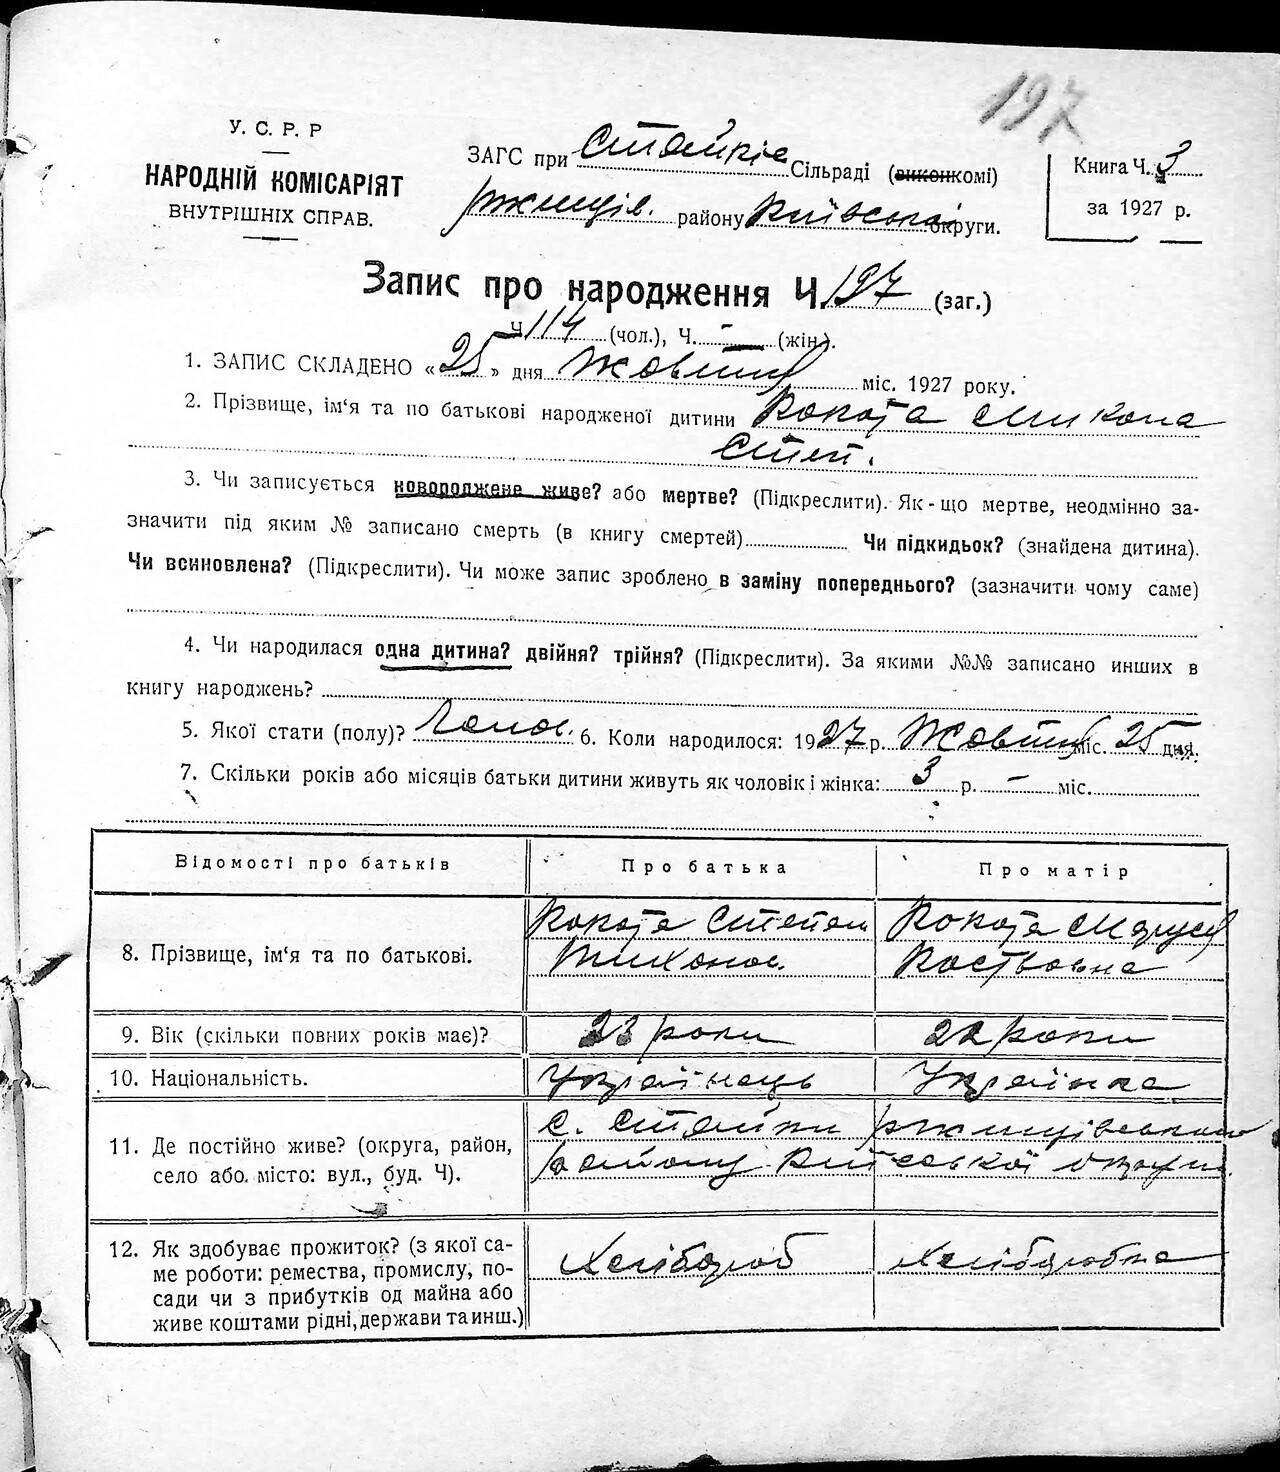 197
У. С. Р. Р
НАРОДНІЙ КОМІСАРІЯТ
ВНУТРІШНІХ СПРАВ.
ЗАГС при Стайків Сільраді (виконкомі)
Ржищів. району Київської округи.
Книга Ч. 3
за 1927 р.
Запис про народження Ч. 197 (заг.)
Ч 114 (чол.), Ч. – (жін.).
1. ЗАПИС СКЛАДЕНО «25» дня Жовтня міс. 1927 року.
2. Прізвище, ім‘я та по батькові народженої дитини Кокота Микола
Степ.
3. Чи записується новороджене живе? або мертве? (Підкреслити). Як-що мертве, неодмінно за-
значити під яким № записано смерть (в книгу смертей) Чи підкидьок? (знайдена дитина).
Чи всиновлена? (Підкреслити). Чи може запис зроблено в заміну попереднього? (зазначити чому саме)
4. Чи народилася одна дитина? двійня? трійня? (Підкреслити). За якими №№ записано инших в
книгу народжень?
5. Якої стати (полу)? Чолов. 6. Коли народилося: 1927 р. Жовтня міс. 25 дня.
7. Скільки років або місяців батьки дитини живуть як чоловік і жінка: 3 р. – міс.
Відомості про батьків Про батька Про матір
8. Прізвище, ім‘я та по батькові. Кокота Степан Кокота Маруся
Тихонов. Костовна
9. Вік (скільки повних років має)? 23 роки 22 роки
10. Національність. Українець Українка
11. Де постійно живе? (округа, район, с. Стайки Ржищівського
село або місто: вул., буд. Ч). району Київської округи.
12. Як здобуває прожиток? (з якої са- Хлібороб Хліборобка
ме роботи: ремества, промислу, по-
сади чи з прибутків од майна або
живе коштами рідні, держави та инш.)